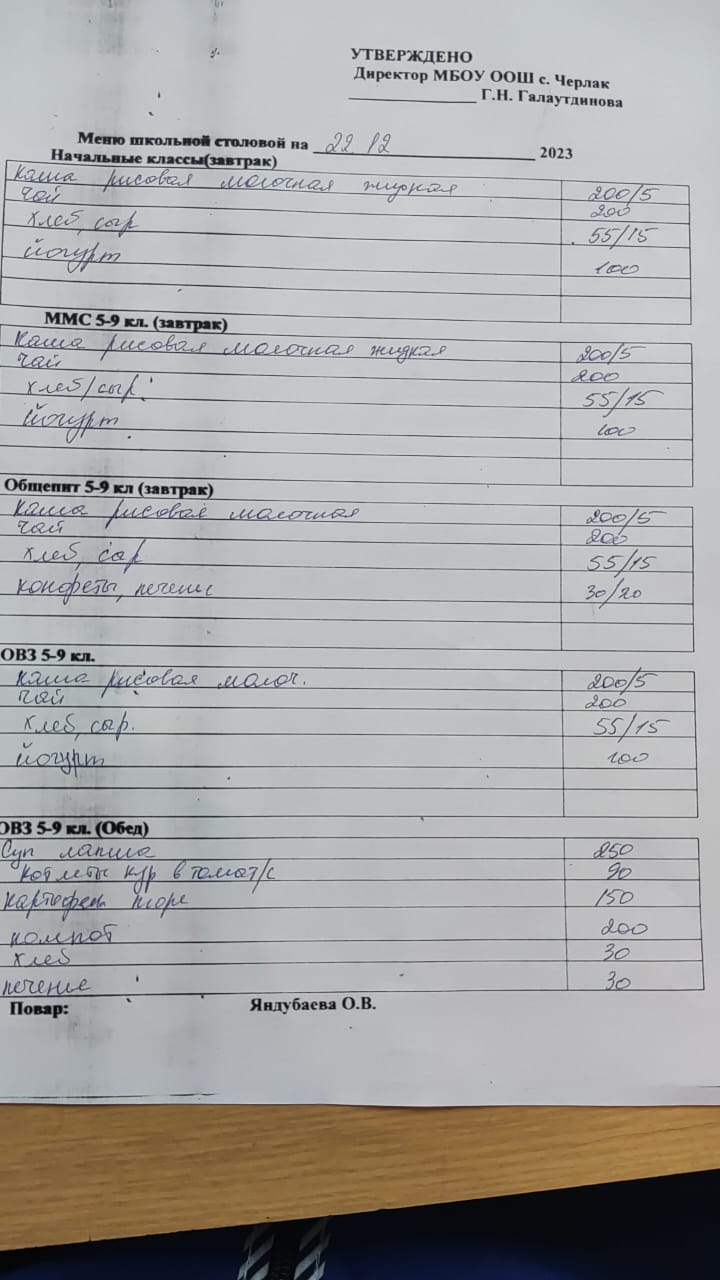 УТВЕРЖДЕНО
Директор МБОУ ООШ с. Черлак
_______________ Г.Н. Галаутдинова
Меню школьной столовой на 22 12 2023
Начальные классы(завтрак)
Каша рисовая молочная жидкая 200/5
Чай 200
хлеб, сыр 55/15
йогурт 100
ММС 5-9 кл. (завтрак)
Каша рисовая молочная жидкая 200/5
Чай 200
хлеб/сыр 55/15
йогурт 100
Общепит 5-9 кл (завтрак)
Каша рисовая молочная 200/5
Чай 200
хлеб, сыр 55/15
конфеты, печенье 30/20
ОВЗ 5-9 кл.
Каша рисовая молоч. 200/5
Чай 200
хлеб, сыр. 55/15
йогурт 100
ОВЗ 5-9 кл. (Обед)
Суп лапша 250
котлеты кур в томат/с 90
картофель пюре 150
компот 200
хлеб 30
печенье 30
Повар: Яндубаева О.В.